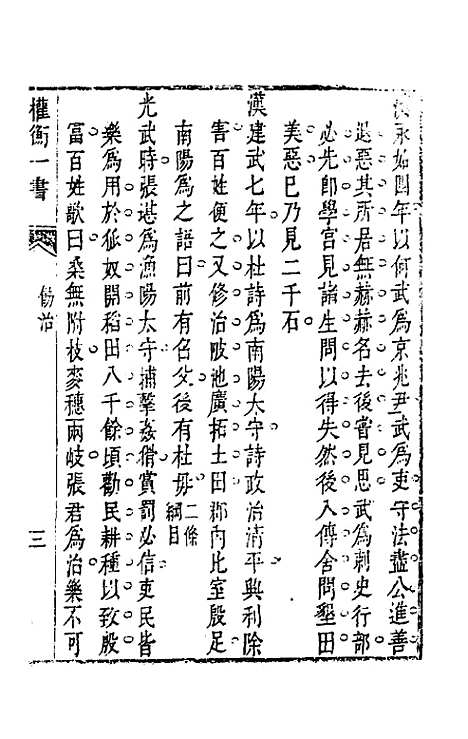 漢永始四年以何武為京兆尹武為吏守法盡公進善
退惡其所居無赫赫名去後嘗見思武為刺史行部
必先即學宮見諸生問以得失然後入傳舍問墾田
美惡已乃見二千石
漢建武七年以杜詩為南陽太守詩政治清平興利除
害百姓便之又修治陂池廣拓土田郡內比室殷足
南陽為之語曰前有召父後有杜母二條綱目
光武時張堪為漁陽太守捕擊姦猾賞罰必信吏民皆
樂為用於狐奴開稻田八千餘頃勸民耕種以致殷
富百姓歌曰桑無附枝麥穗兩岐張君為治樂不可
權衡一書
飭治
三